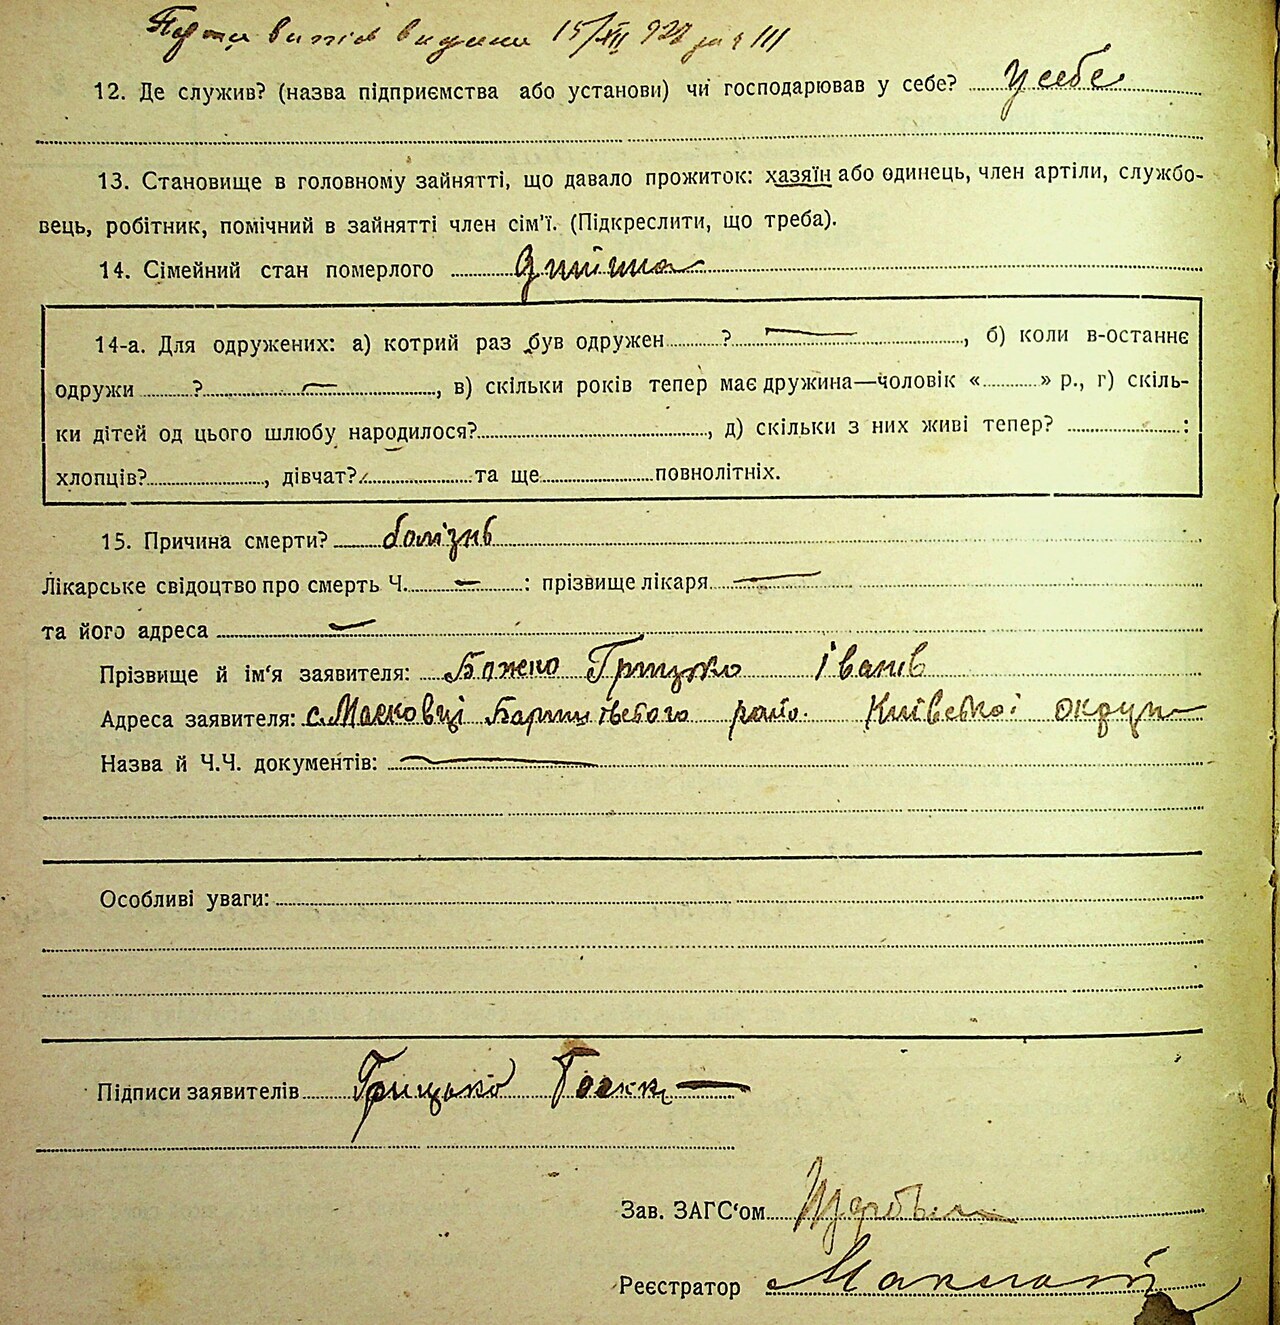 15/XII 927 за ч III
12. Де служив? (назва підприємства або установи) чи господарював у себе? у себе
13. Становище в головному зайнятті, що давало прожиток: хазяїн або одинець, член артіли, службо-
вець, робітник, помічний в зайнятті член сім'ї. (Підкреслити, що треба).
14. Сімейний стан померлого
14-а. Для одружених: а) котрий раз був одружен ? , б) коли в-останнє
одружи ? , в) скільки років тепер має дружина—чоловік « » р., г) скіль-
ки дітей од цього шлюбу народилося? , д) скільки з них живі тепер? :
хлопців? , дівчат? та ще повнолітніх.
15. Причина смерти? болізнь
Лікарське свідоцтво про смерть Ч. — : прізвище лікаря —
та його адреса —
Прізвище й ім'я заявителя: Божко Грицько Іванів
Адреса заявителя: с. Масковці Баришівського райо. Київської округи
Назва й Ч.Ч. документів: —
Особливі уваги:
Підписи заявителів Грицько
Зав. ЗАГС'ом
Реєстратор